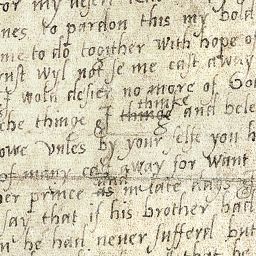 for my desert
nes to pardon this my bold
me to do together with hope of
rust wyl not se me cast away
I wold desier no more of God
thinke
che thinge I thinge and bele
owe unles by your selfe you h
of many cast away for want
her prince as in late days
say that if his brother had
n he had never sufferd but
that he